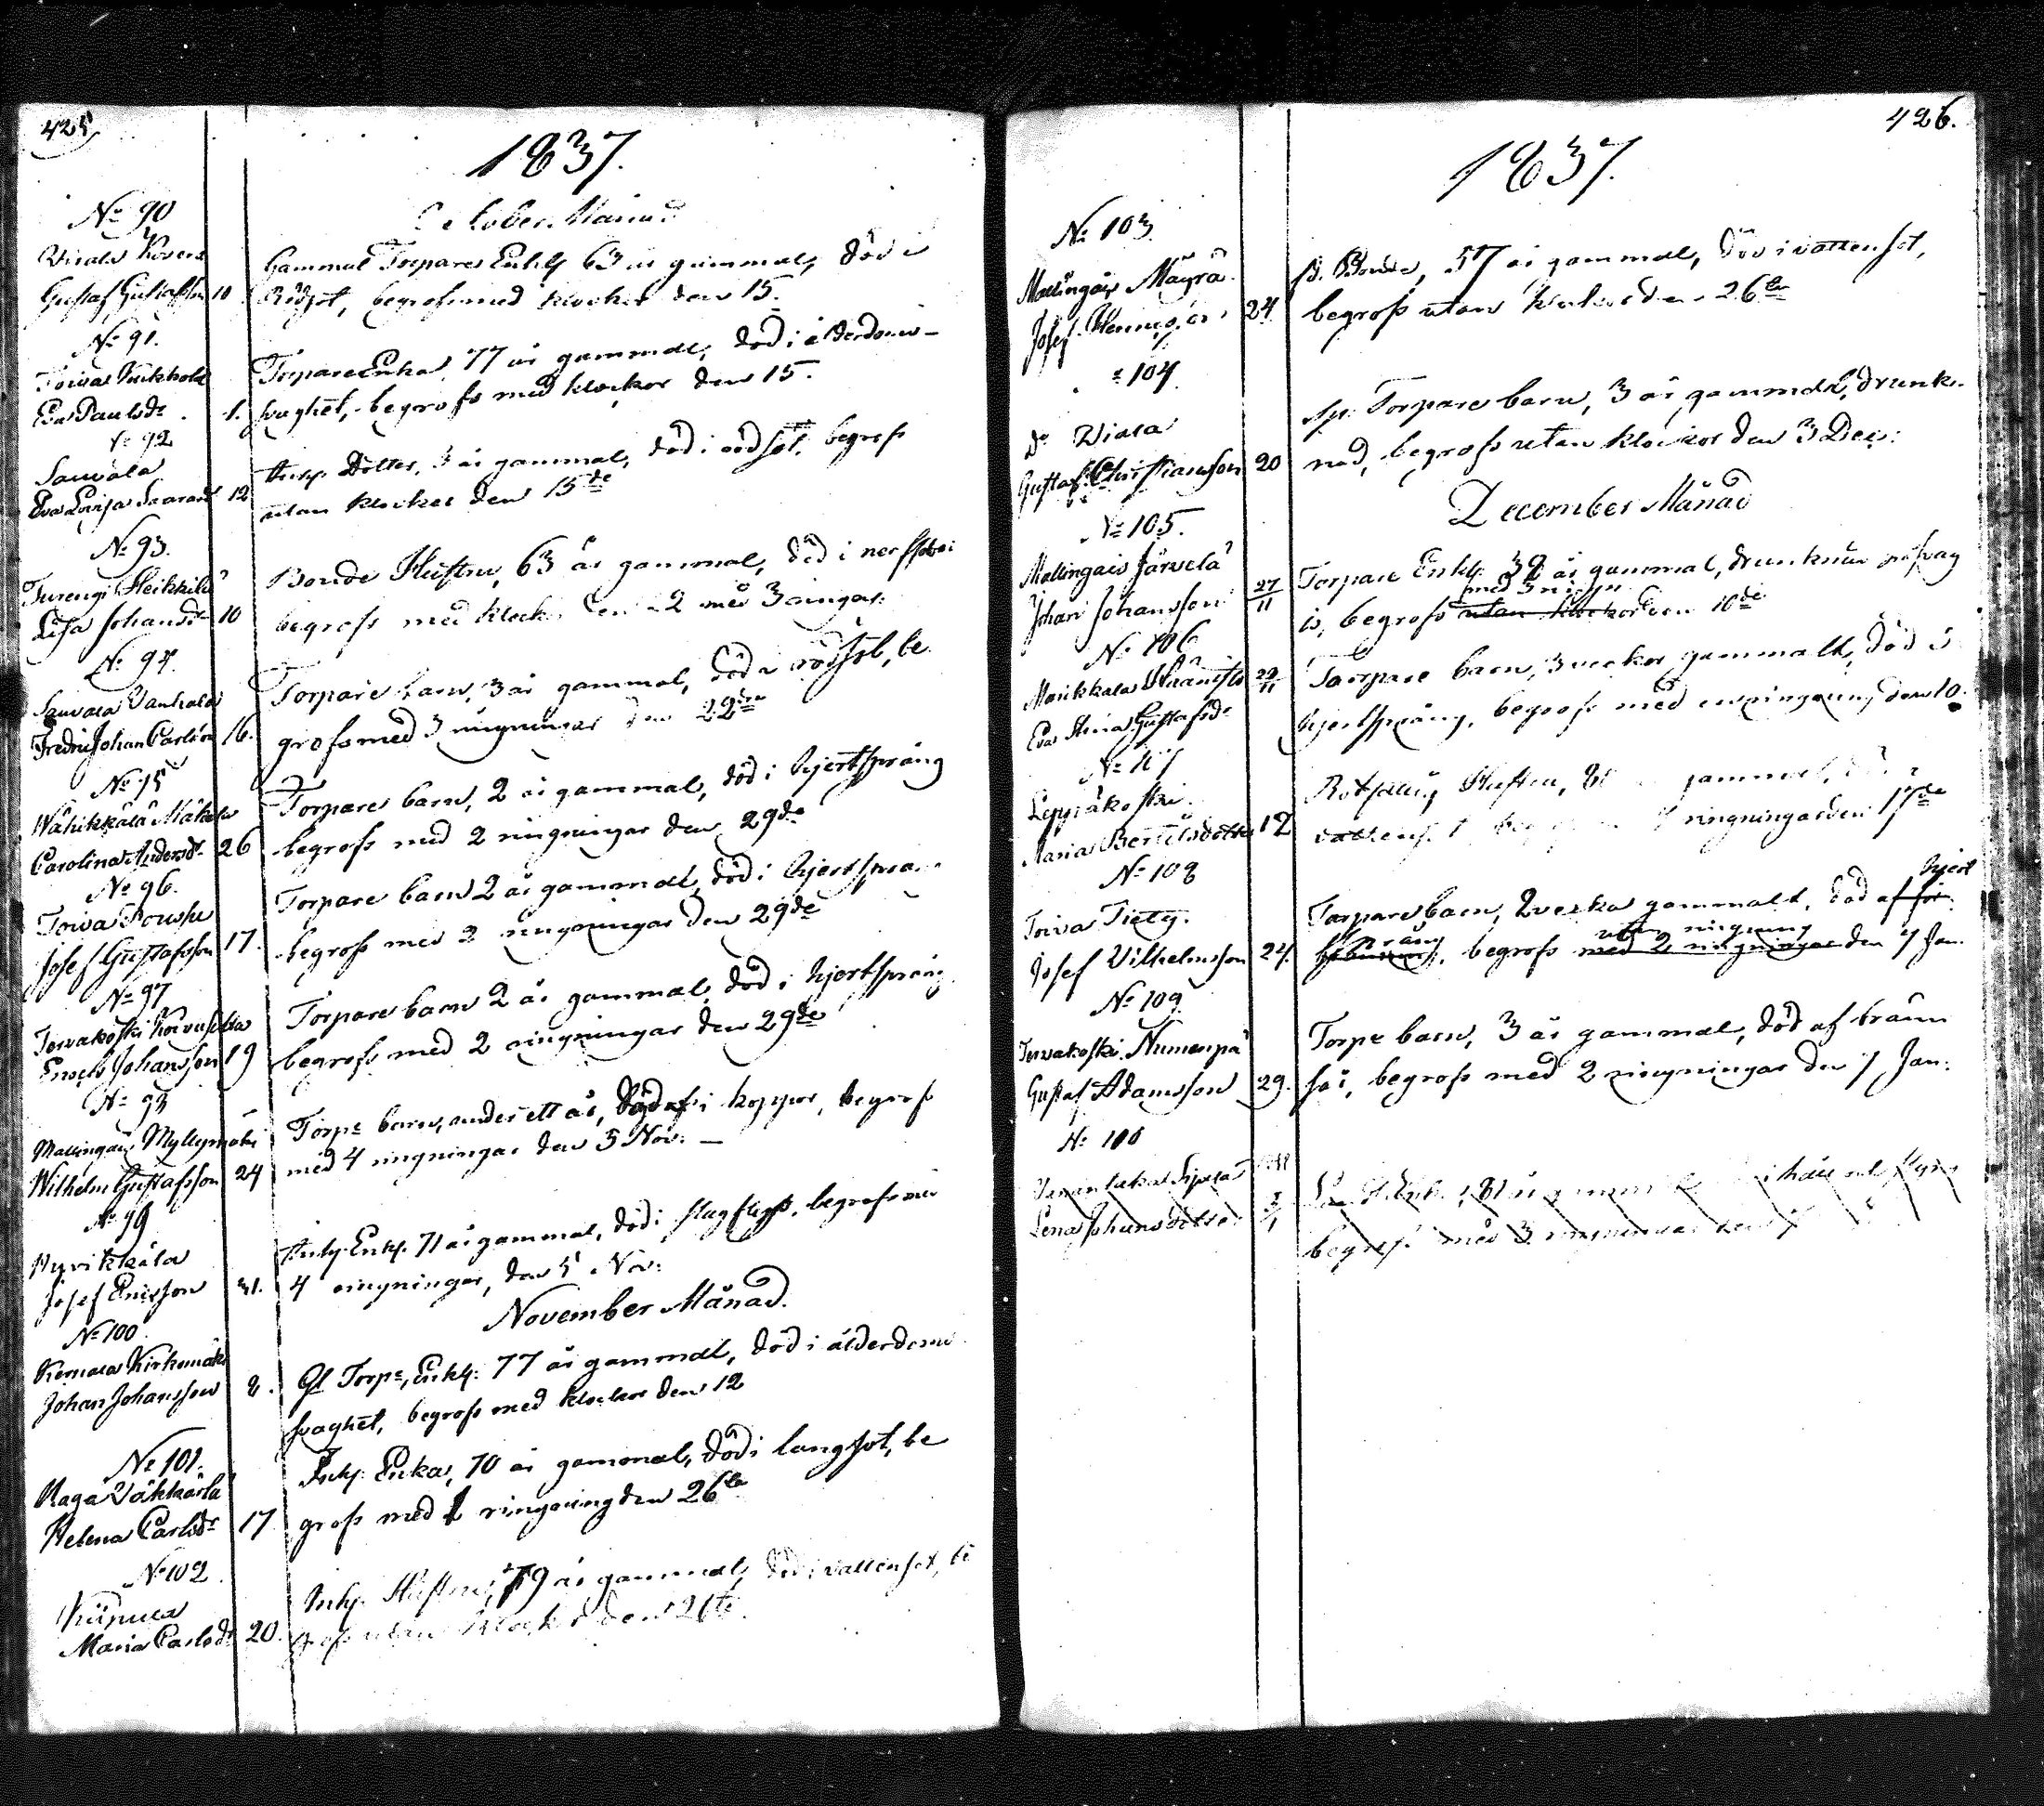 425
1837.
October Månad
No 90
Viiala
Gustaf Gustafsson 10
Gammal Torpare Enkl: 63 år gammal, död i
Rödsot, begrofs med klockor den 15.
No 91.
Eva Paulsdr. 1.
Torpare Enka, 77 år gammal, död i ålderdoms-
svaghet, begrofs med klockor den 15.
No 92
Sauvala
12
Inhy: Dotter, 3 år gammal, död i rödsot, begrofs
utan klockor den 15de
No 93.
Turengi Heikkilä
Lisa Johansdr 10
Bonde Hustru, 63 år gammal, död i
begrofs med klock. den 22 med 3 ringar:
No 94.
Sauvala Vanhala
Fredric Johan Carlsson 16.
Torpare barn, 3 år gammal, död i rödsot, be
grofs med 3 ringningar den 22dra
No 95
Wähikkälä Mäkelä
Carolina Andersdr 26
Torpare barn, 2 år gammal, död i hjertsprång
begrofs med 2 ringningar den 29de
No 96.
Toiva
Josef Gustafsson 17.
Torpare barn 2 år gammal, död i hjertsprång
begrofs med 2 ringningar den 29de
No 97
Tervakoski
Enoch Johansson 19
Torpare barn 2 år gammal, död i hjertsprång
begrofs med 2 ringningar den 29de
No 98
Mallingais Myllymäki
Wilhelm Gustafsson 24
Torpe barn, under ett år, död i koppor, begrofs
med 4 ringningar den 5 Nov: —
No 99
Hyvikkälä
Josef Ericsson 31.
Inhy: Enkl: 71 år gammal, död i slagfluss, begrofs med
4 ringningar, den 5 Nov:
November Månad.
No 100.
Kernala Kirkomäki
Johan Johansson 8.
Gl Torpe, Enkl: 77 år gammal, död i ålderdoms
svaghet, begrofs med klockor den 12
No 101.
Raga Väkkärlä
Helena Carlsdr 17
Inhy: Enka, 70 år gammal, död i lungsot, be
grofs med 1 ringning den 26te
No 102
Maria Carlsdr 20.
Inhy: Hustru, 79 år gammal, död i vattensot, be
grofs utan klockor den 26te
426.
1837.
No 103.
Mallingais Mäyrä
Josef 24
Bonde, 57 år gammal, död i vattensot,
begrofs utan klockor den 26te
104.
Do Viala
Gustaf Christiansson 20
Sp: Torpare barn, 3 år gammal, drunk-
nad, begrofs utan klockor den 3 Dec:
December Månad
No 105.
Mallingais Järvelä
Johan Johansson 27/11
Torpare Enkl: 32 år gammal, drunknad på svag
med 3 ringn
is, begrofs utan klockor den 10de
No 106
Eva Stina Gustafsdr 29/11
Torpare barn, 3 veckor gammalt, död i
hjertsprång, begrofs med en ringning den 10.
No 107
Leppäkoski
Maria Bertilsdotter 12
Hustru, gammal,
ringningar den 17de
No 108
Toiva
Josef Wilhelmsson 24.
hjert
Torpare barn, 2 veckor gammalt, död af
utan ringning
språng, begrofs med 2 ringningar den 7 Jan.
No 109
Tervakoski Numenpä
Gustaf Adamsson 29.
Torpe barn, 3 år gammal, död af bränn
sår, begrofs med 2 ringningar den 7 Jan:
No 110
Lena Johansdotter 3/1
begrofs med 3 ringningar den 7